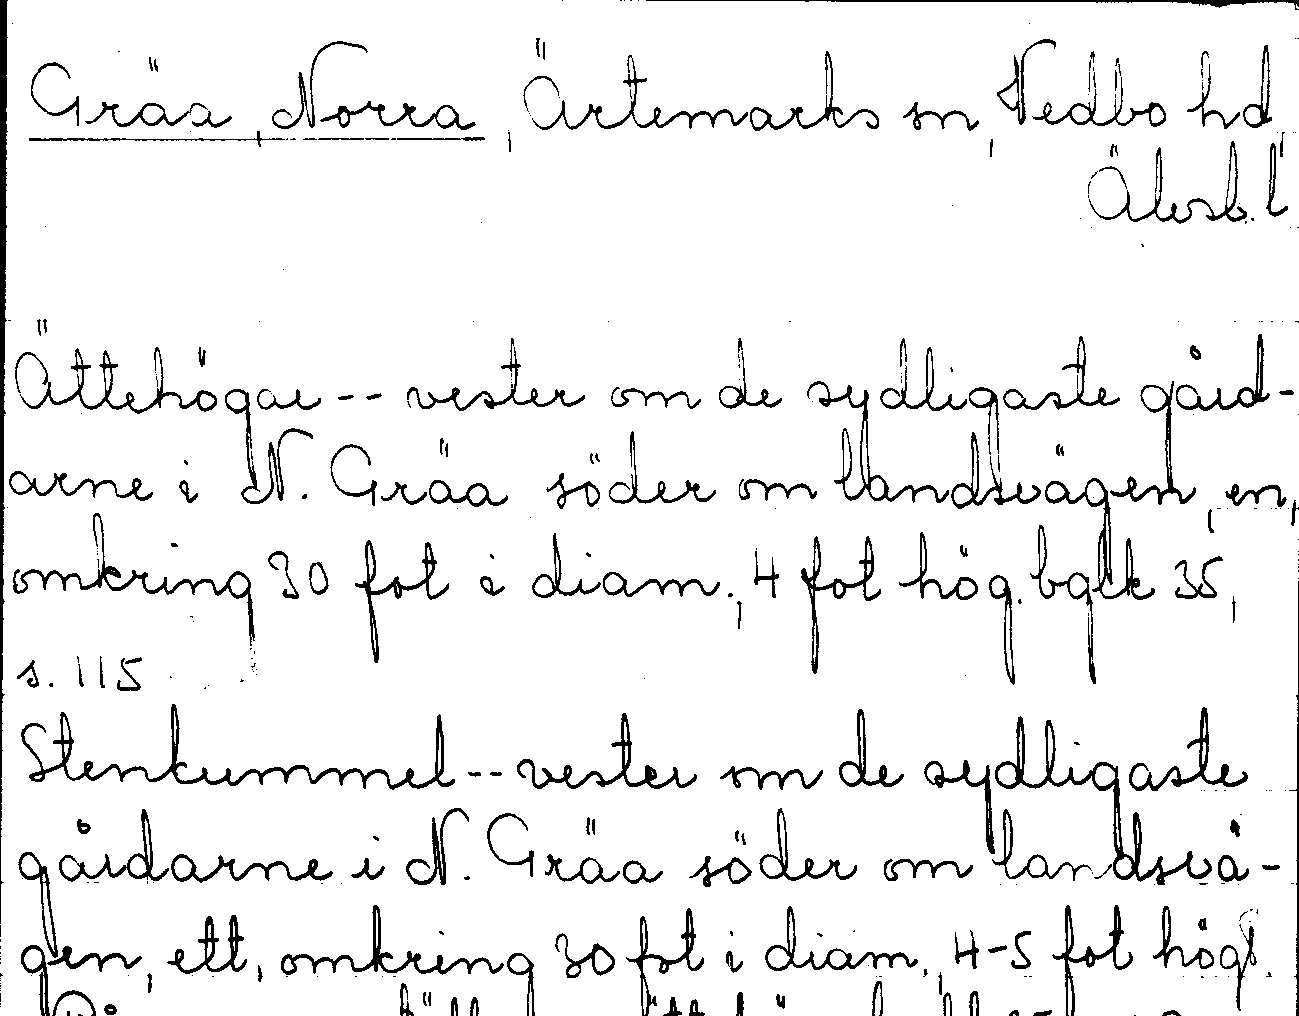 Gräa, Norra, Ärtemarks sn, Vedbo hd,
Älvsb. l
Ättehögar -- vester om de sydligaste gård-
arne i N. Gräa söder om landsvägen, en,
omkring 30 fot i diam., 4 fot hög. bglk 35,
s. 115
Stenkummel -- vester om de sydligaste
gårdarne i N. Gräa söder om landsvä-
gen, ett, omkring 30 fot i diam., 4-5 fot högt.